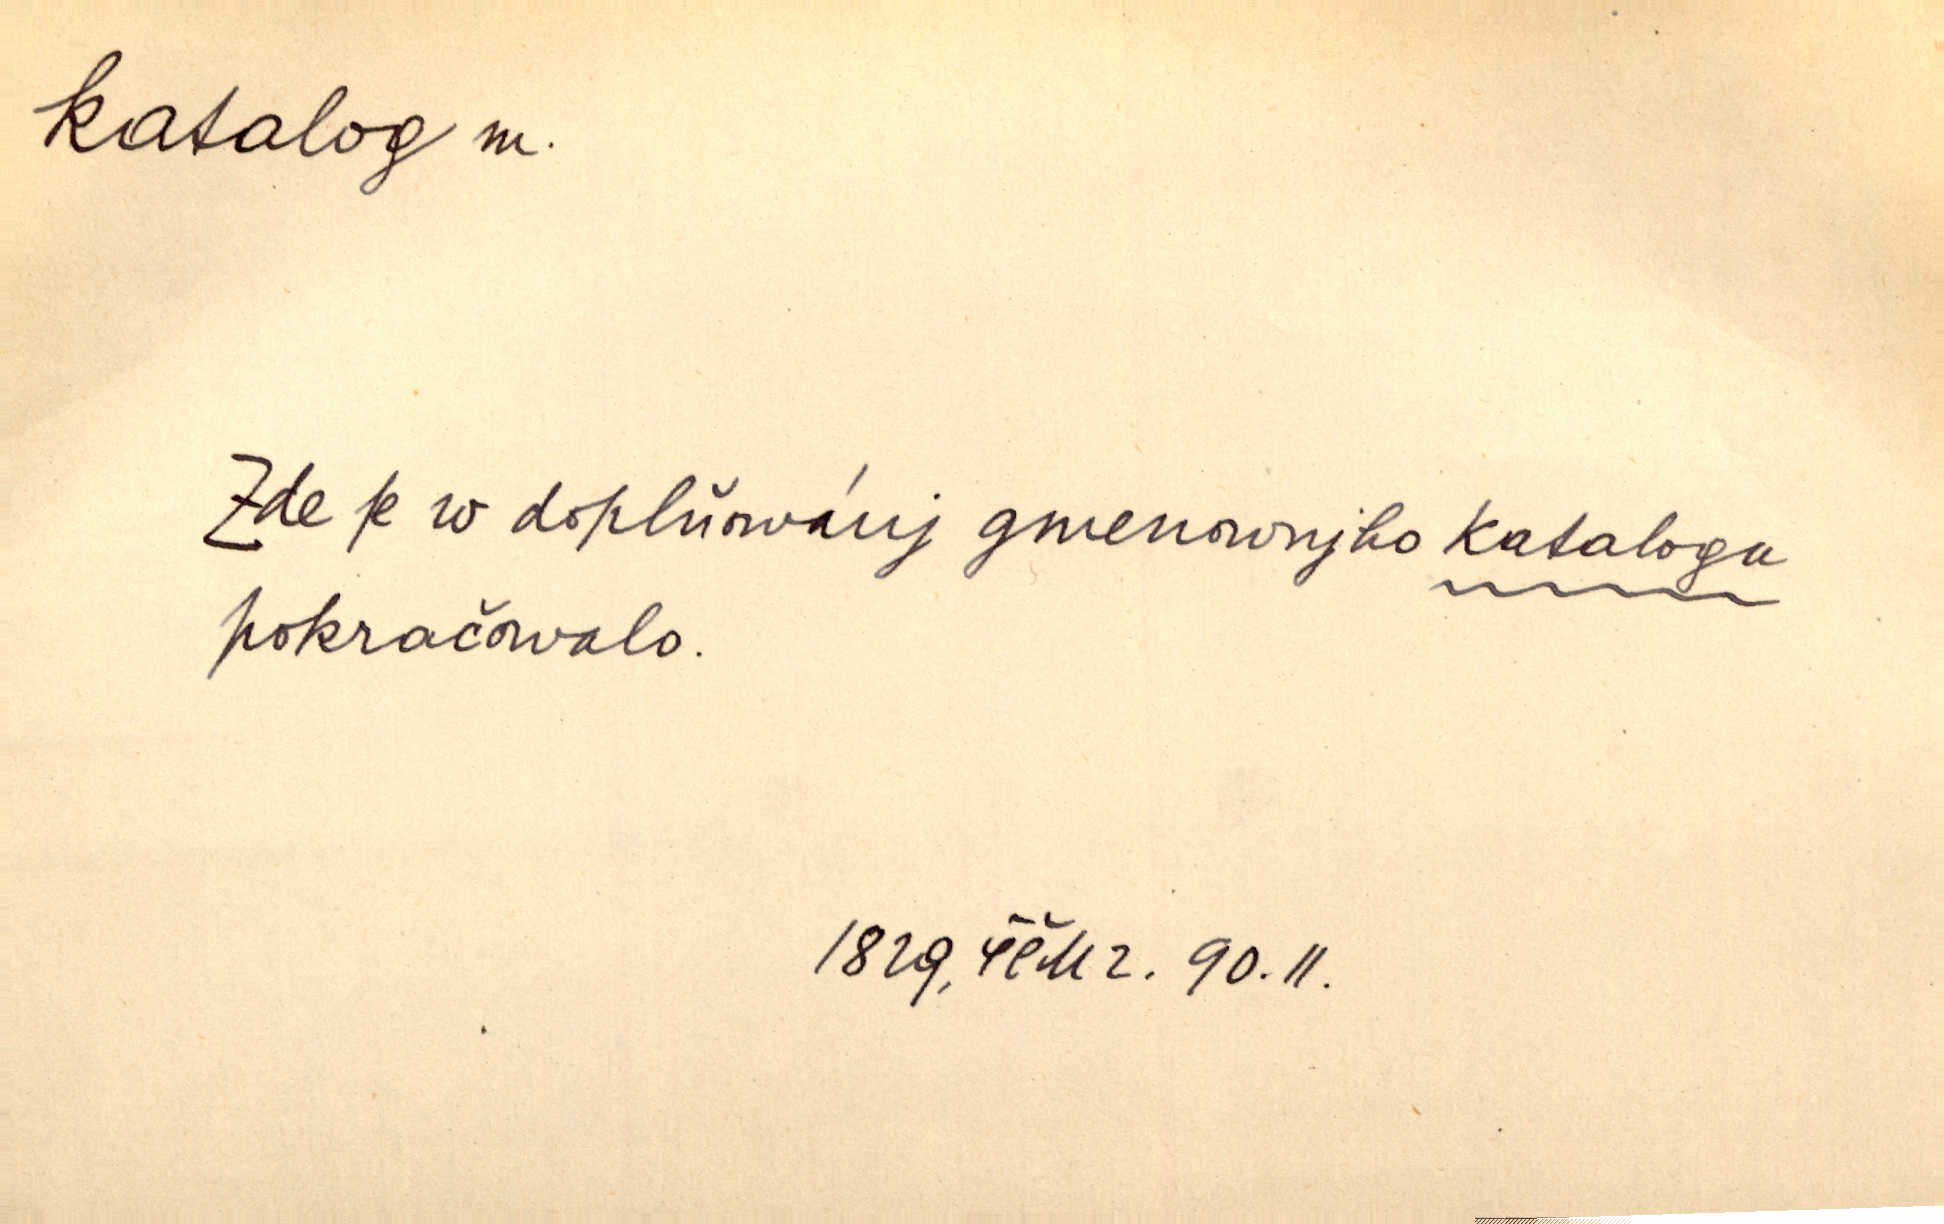 katalog m.
Zde se w doplňowánj gmenownjho katalogu
pokračowalo.
1829, ČČM 2. 90. II.